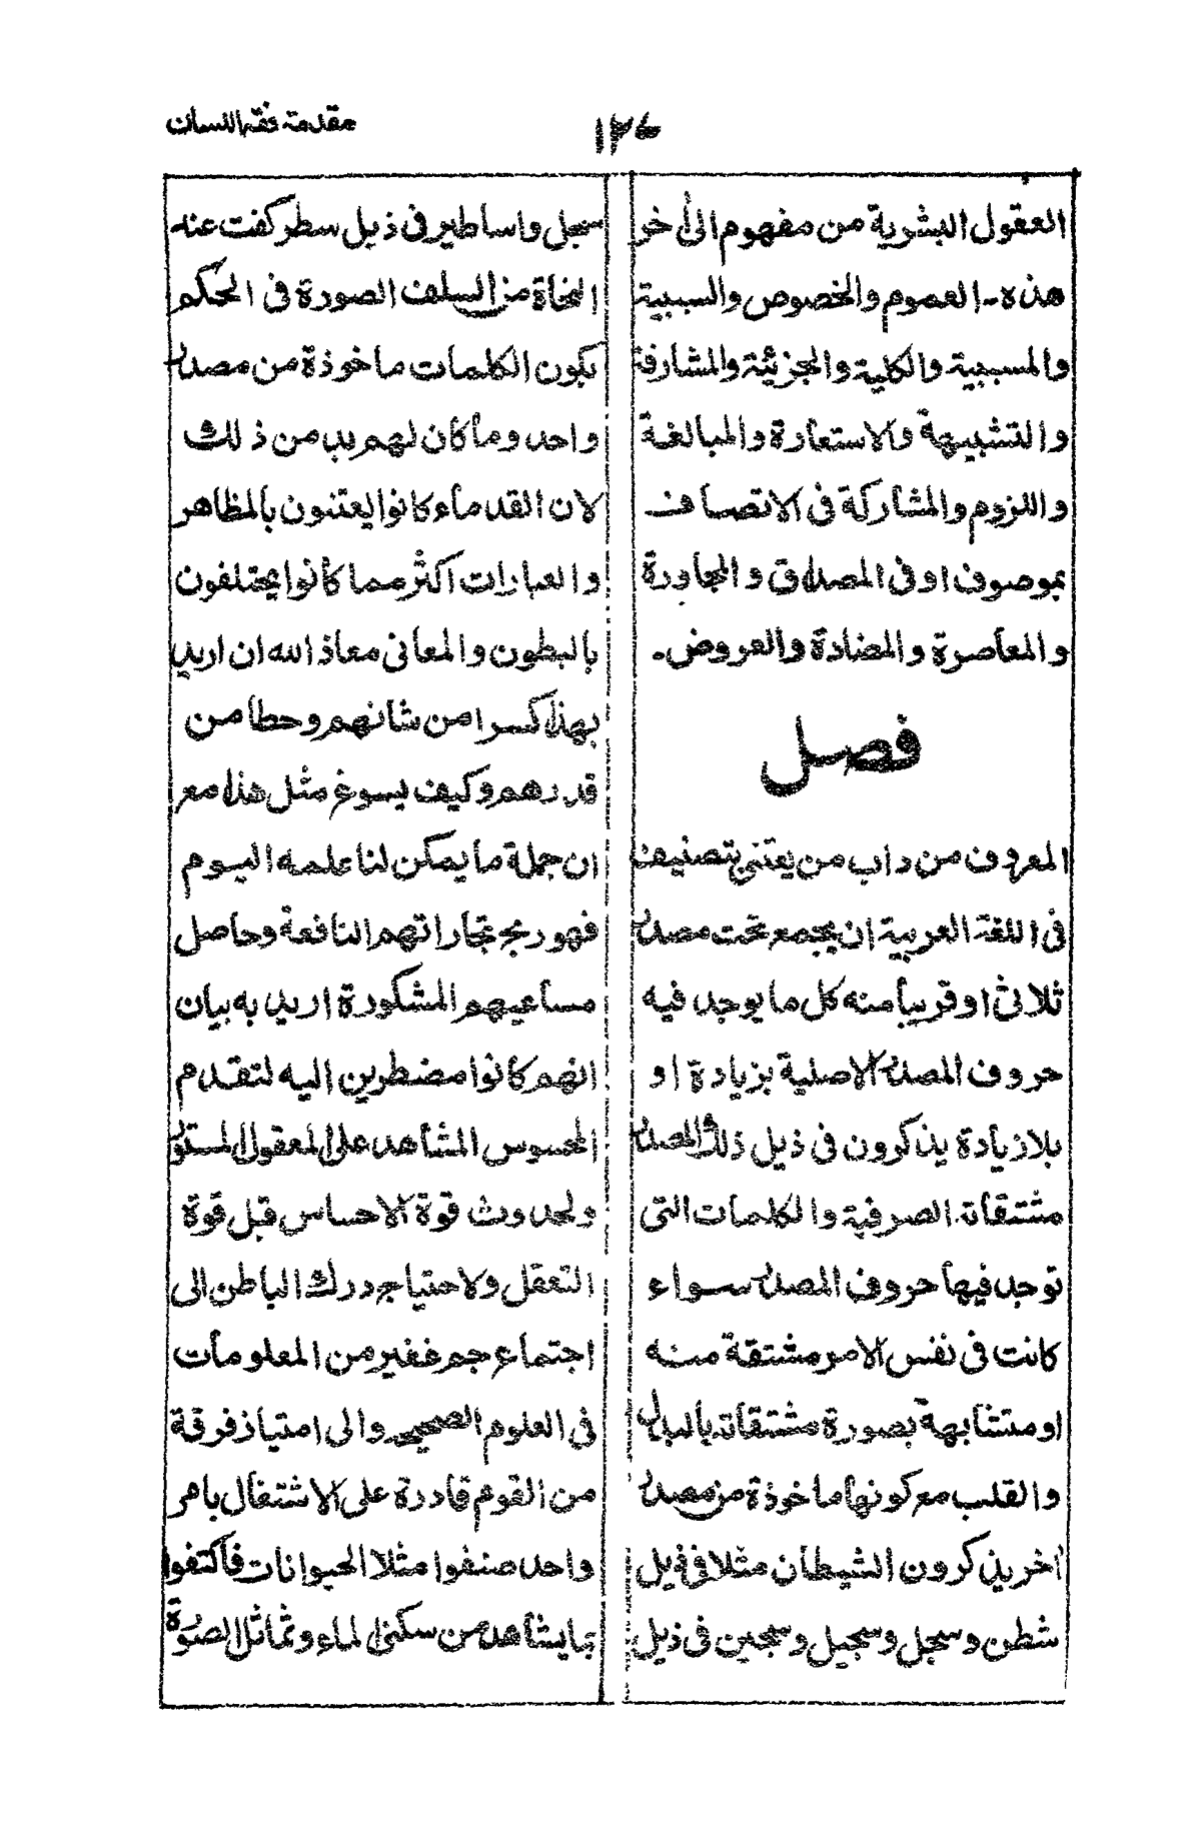 مقدمة فقه اللسان
١٢٧
العقول البشرية من مفهوم الى اخر
هذه۔ العموم والخصوص والسببية
والمسببية والكلية والجزئية والمشارفة
والتشبيهة والاستعارة والمبالغة
واللزوم والمشاركة فى الاتصاف
بموصوف او فى المصداق و المجاورة
والمعاصرة والمضادة والعروض۔
فصل
المعروف من داب من يعتنى بتصنيف
فى اللغة العربية ان يجمع تحت مصدر
ثلاثى او قريبا منه كل ما يوجد فيه
حروف المصدر الاصلية بزيادة او
بلا زيادة يذكرون فى ذيل ذلك المصدر
مشتقاته الصرفية والكلمات التى
توجد فيها حروف المصدر سواء
كانت فى نفس الامر مشتقة منه
او متشابهة بصورة مشتقاته بالبدل
والقلب مع كونها ماخوذة من مصدر
اخر يذكرون الشيطان مثلا فى ذيل
شطن وسجل وسجيل وسجين فى ذيل
سجل واساطير فى ذيل سطر كفت عنه
النحاة من السلف الصورة فى الحكم
بكون الكلمات ماخوذة من مصدر
واحد وما كان لهم بد من ذلك
لان القدماء كانوا يعتنون بالمظاهر
والعبارات اكثر مما كانوا يحتلفون
بالبطون والمعانى معاذ الله ان اريد
بهذا كسرا من شانهم وحطا من
قدرهم وكيف يسوغ مثل هذا مع
ان جملة ما يمكن لنا علمه اليوم
فهو ربح تجاراتهم النافعة وحاصل
مساعيهم المشكورة اريد به بيان
انهم كانوا مضطرين اليه لتقدم
المحسوس المشاهد على المعقول المستور
ولحدوث قوة الاحساس قبل قوة
التعقل ولاحتياج درك الباطن الى
اجتماع جم غفير من المعلومات
فى العلوم الصحيحه والى امتياز فرقة
من القوم قادرة على الاشتغال بامر
واحد صنفوا مثلا الحيوانات فاكتفوا
بما يشاهد من سكنى الماء وتماثل الصورة